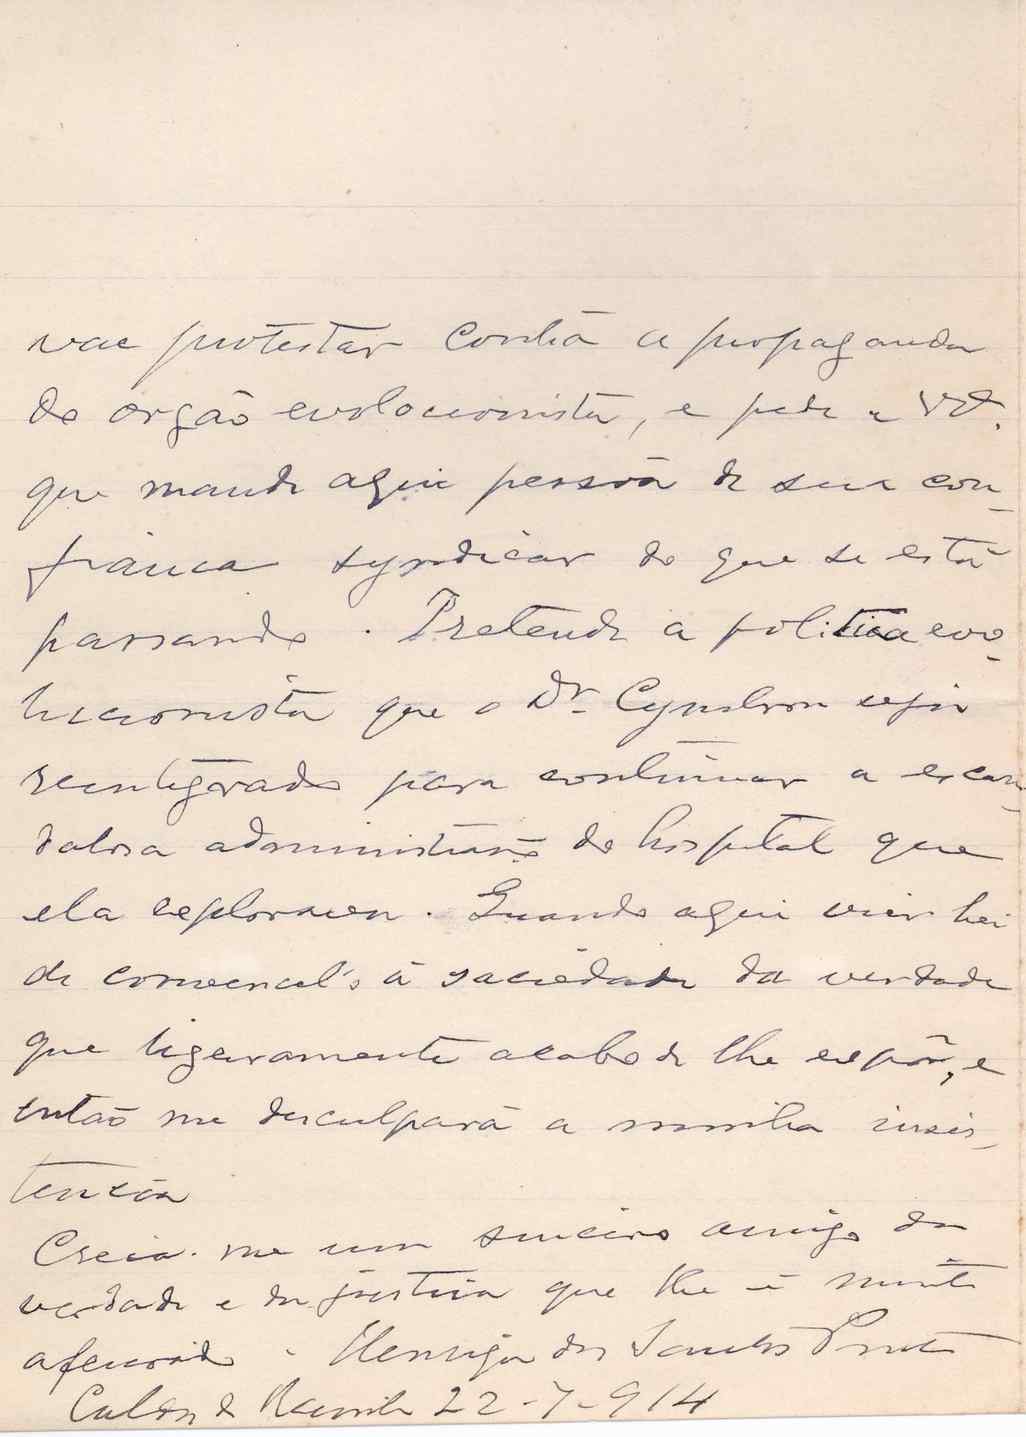 vae protestar contra a propaganda
do orgão evolocionista, e pede a
que mande aqui pessôa de sua con-
fiança syndicar do que se está
passando. Pretende a politica evo-
lucionista que o Dr. seja
reintegrado para continuar a escan-
dalosa administração do hospital que
ela explorava. Quando aqui vier hei
de á saciedade da verdade
que ligeiramente acabo de lhe expôr, e
então me desculpará a minha insis-
tencia
Creia-me um sincero amigo da
verdade e da justiça que lhe é muito
afeiçoado. dos Santos
Caldas da Rainha 22-7-914